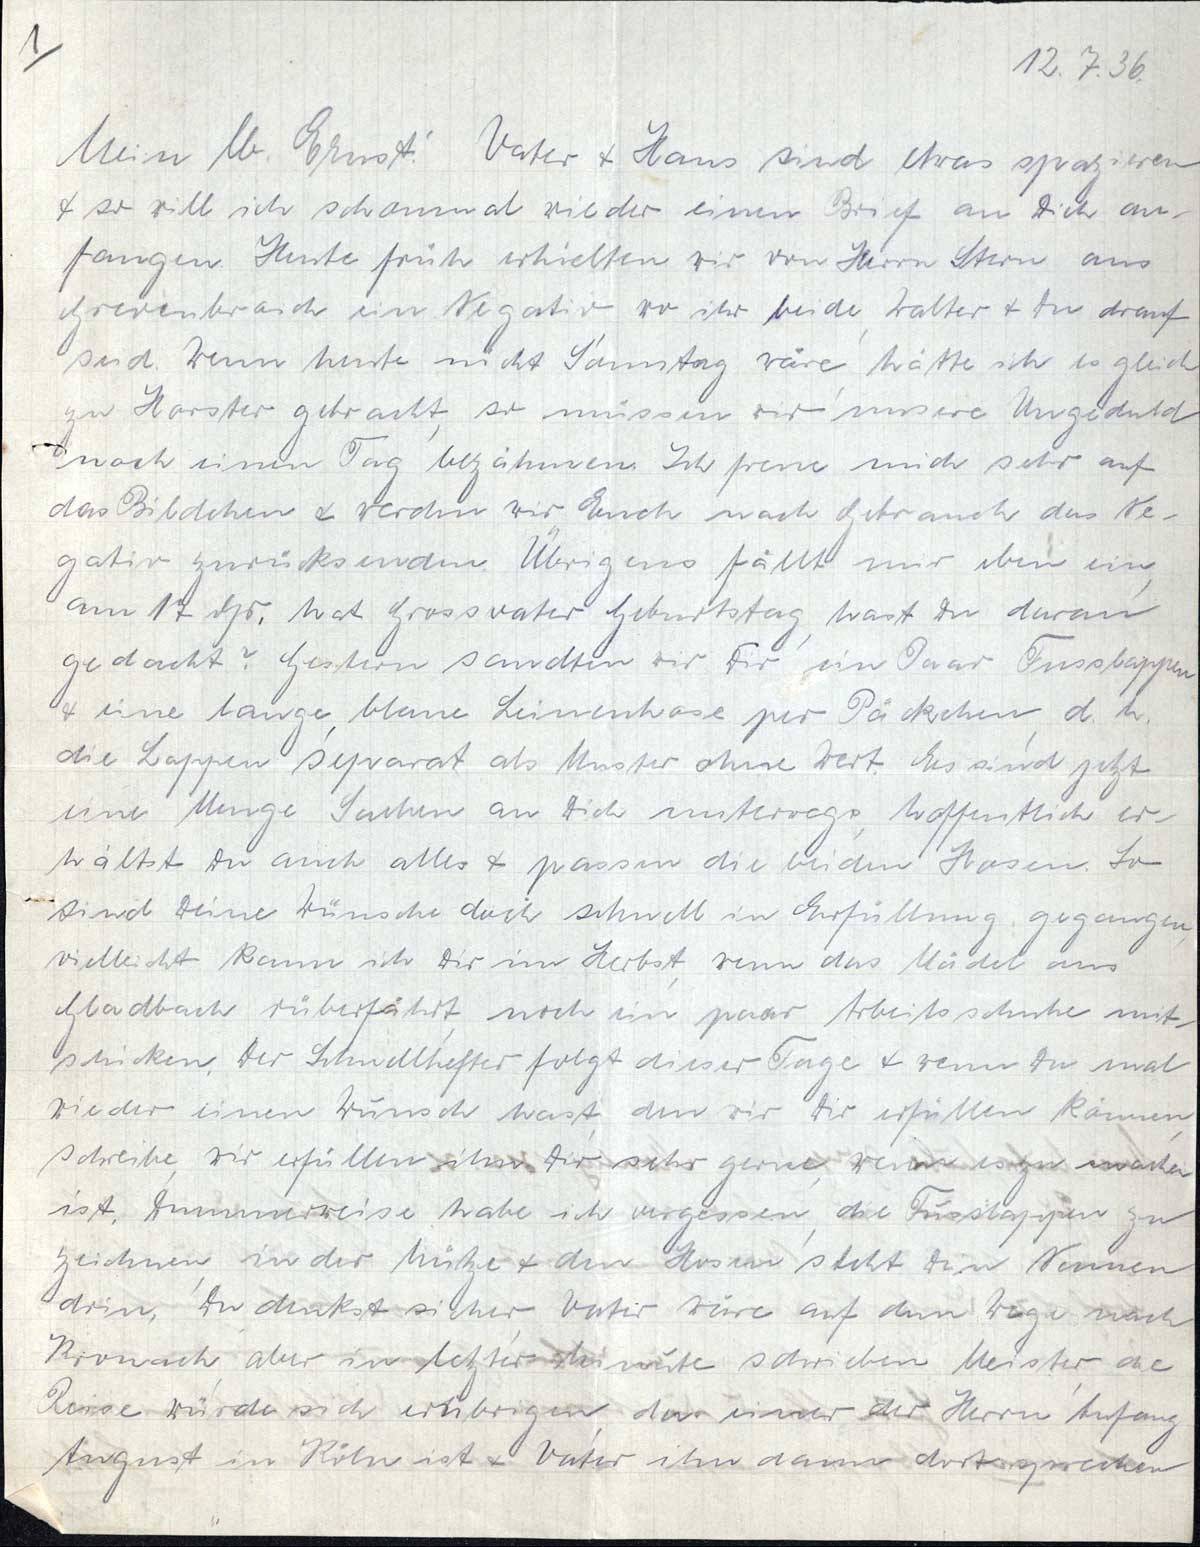 1/
12.7.36.
Mein lb. Ernst! Vater & Hans sind etwas spazieren
& so will ich schonmal wieder einen Brief an Dich an-
fangen. Heute früh erhielten wir von Herrn Stern aus
Grevenbroich ein Negativ wo ihr beide, Walter & Du drauf
seid. Wenn heute nicht Sonntag wäre, hätte ich es gleich
zu Horster gebracht, so müssen wir unsere Ungeduld
noch einen Tag bezähmen. Ich freue mich sehr auf
das Bildchen & werden wir Euch nach Gebrauch das Ne-
gativ zurücksenden. Übrigens fällt mir eben ein,
am 17 ds. hat Grossvater Geburtstag, hast Du daran
gedacht? Gestern sandten wir Dir ein Paar Fusslappen
& eine lange, blaue Leinenhose per Päckchen, d. h.
die Lappen separat als Muster ohne Wert. Es sind jetzt
eine Menge Sachen an Dich unterwegs, hoffentlich er-
hältst Du auch alles & passen die beiden Hosen. So
sind Deine Wünsche doch schnell in Erfüllung gegangen,
vielleicht kann ich Dir im Herbst, wenn das Mädel aus
Gladbach rüberfährt, noch ein paar Arbeitsschuhe mit-
schicken. Der Schnellhefter folgt dieser Tage & wenn Du mal
wieder einen Wunsch hast, den wir Dir erfüllen können,
schreibe, wir erfüllen ihn Dir sehr gerne, wenn es zu machen
ist. Dummerweise habe ich vergessen, die Fusslappen zu
zeichnen, in der Mütze & den Hosen steht Dein Namen
drin. Du denkst sicher, Vater wäre auf dem Wege nach
Kronach, aber in letzter Minute schrieben Meister, die
Reise würde sich erübrigen, da einer der Herrn Anfang
August in Köln ist & Vater ihn dann dort sprechen